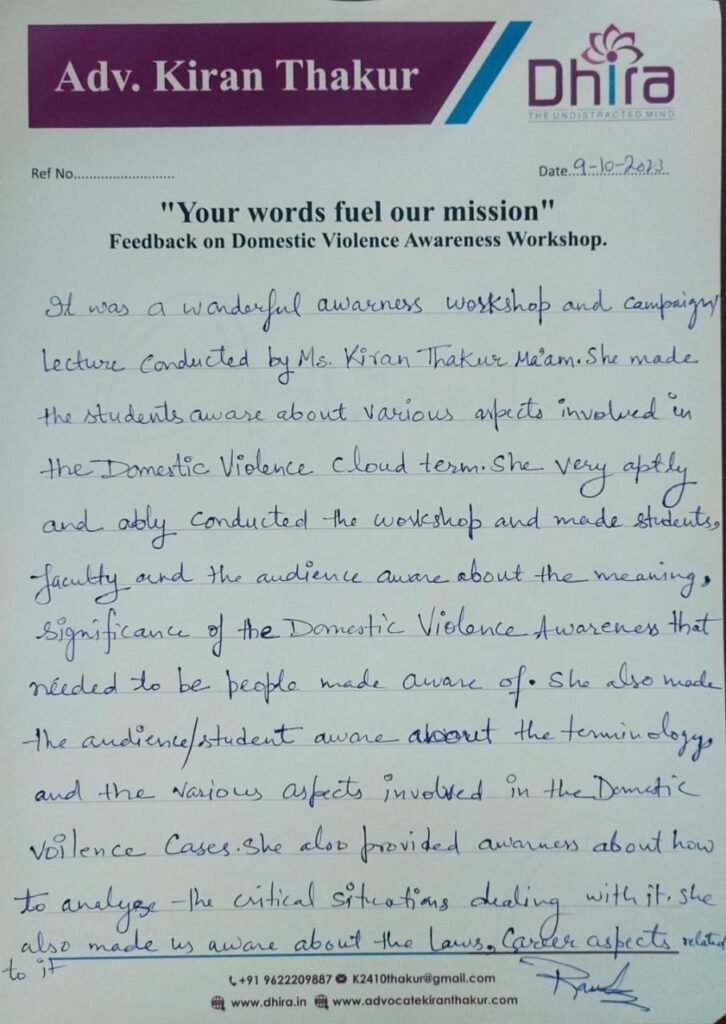 Adv. Kiran Thakur
Dhira
THE UNDISTRACTED MIND
Ref No..........................
Date 9-10-2023
"Your words fuel our mission"
Feedback on Domestic Violence Awareness Workshop.
It was a wonderful awarness workshop and campaign
Lecture conducted by Ms. Kiran Thakur Ma'am. She made
the students aware about various aspects involved in
the Domestic Violence Cloud term. She very aptly
and ably conducted the workshop and made students,
faculty and the audience aware about the meaning,
significance of the Domestic Violence Awareness that
needed to be people made aware of. She also made
the audience/student aware about the terminology,
and the various aspects involved in the Domestic
Voilence Cases. She also provided awarness about how
to analyze the critical situations dealing with it. She
also made us aware about the Laws, Career aspects related
to it
+91 9622209887 K2410thakur@gmail.com
www.dhira.in www.advocatekiranthakur.com